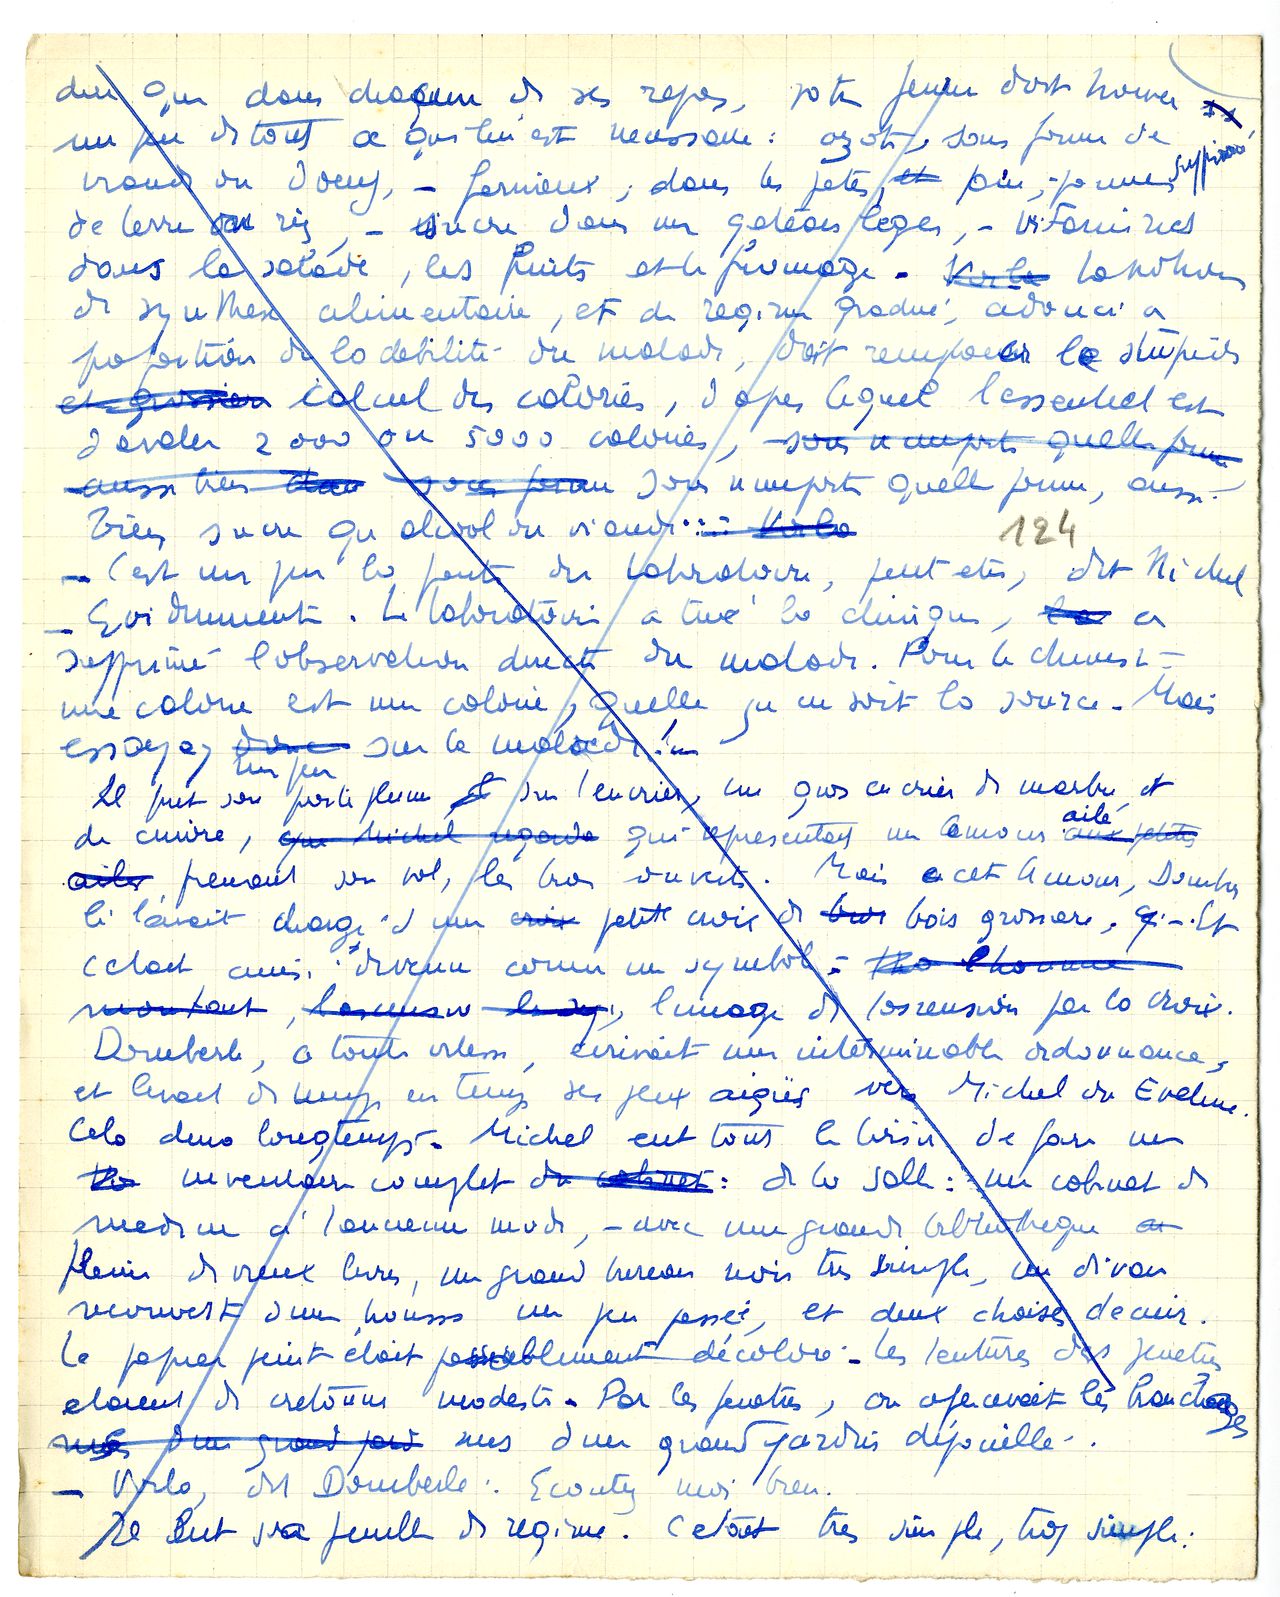 dire que dans chacun de ses repas, votre femme doit trouver
un peu de tout ce qui lui est nécessaire : azote, sous forme de
supprimé
viande ou d'oeufs, – farineux, dans les pâtes, et pain, pommes
de terre ou riz, – sucre dans un gâteau léger, – vitamines
dans la salade, les fruits et le fromage. Voilà La notion
de synthèse alimentaire, et de régime gradué, adouci à
proportion de la débilité du malade, doit remplacer le stupide
et grossier calcul des calories, d'après lequel l'essentiel est
d'avaler 2000 ou 5000 calories, sous n'importe quelle forme
aussi bien sous forme sous n'importe quelle forme, aussi
bien sucre qu'alcool ou viande... Voilà
124
– C'est un peu la faute du laboratoire, peut-être, dit Michel
– Evidemment. Le laboratoire a tué la clinique, a
supprimé l'observation directe du malade. Pour le chimiste
une calorie est une calorie, quelle qu'en soit la source. Mais
essayez donc sur le malade !...
un peu
Il prit son porte plume sur l'encrier, un gros encrier de marbre et
de cuivre, que Michel regarda qui représentait un Amour aux petites
ailé
ailes prenant son vol, les bras ouverts. Mais cet Amour, Domber
le l'avait chargé d'une croix petite croix de bois bois grossière. Et
c'était ainsi devenu comme un symbole : l'homme
montant, l'ascension l'image de l'ascension par la croix.
Domberlé, à toute vitesse, écrivait une interminable ordonnance,
et levait de temps en temps ses yeux aigus vers Michel ou Evelyne.
Cela dura longtemps. Michel eut tout le loisir de faire un
inventaire complet du cabinet : de la salle : un cabinet de
médecin à l'ancienne mode, – avec une grande bibliothèque
pleine de vieux livres, un grand bureau noir très simple, un divan
recouvert d'une housse un peu passée, et deux chaises de cuir.
Le papier peint était passablement décoloré. Les tentures des fenêtres
étaient de cretonne modeste. Par les fenêtres, on apercevait les branchages
nus d'un grand jard nus d'un grand jardin dépouillé.
– Voilà, dit Domberlé. Ecoutez moi bien.
Il lut sa feuille de régime. C'était très simple, trop simple :